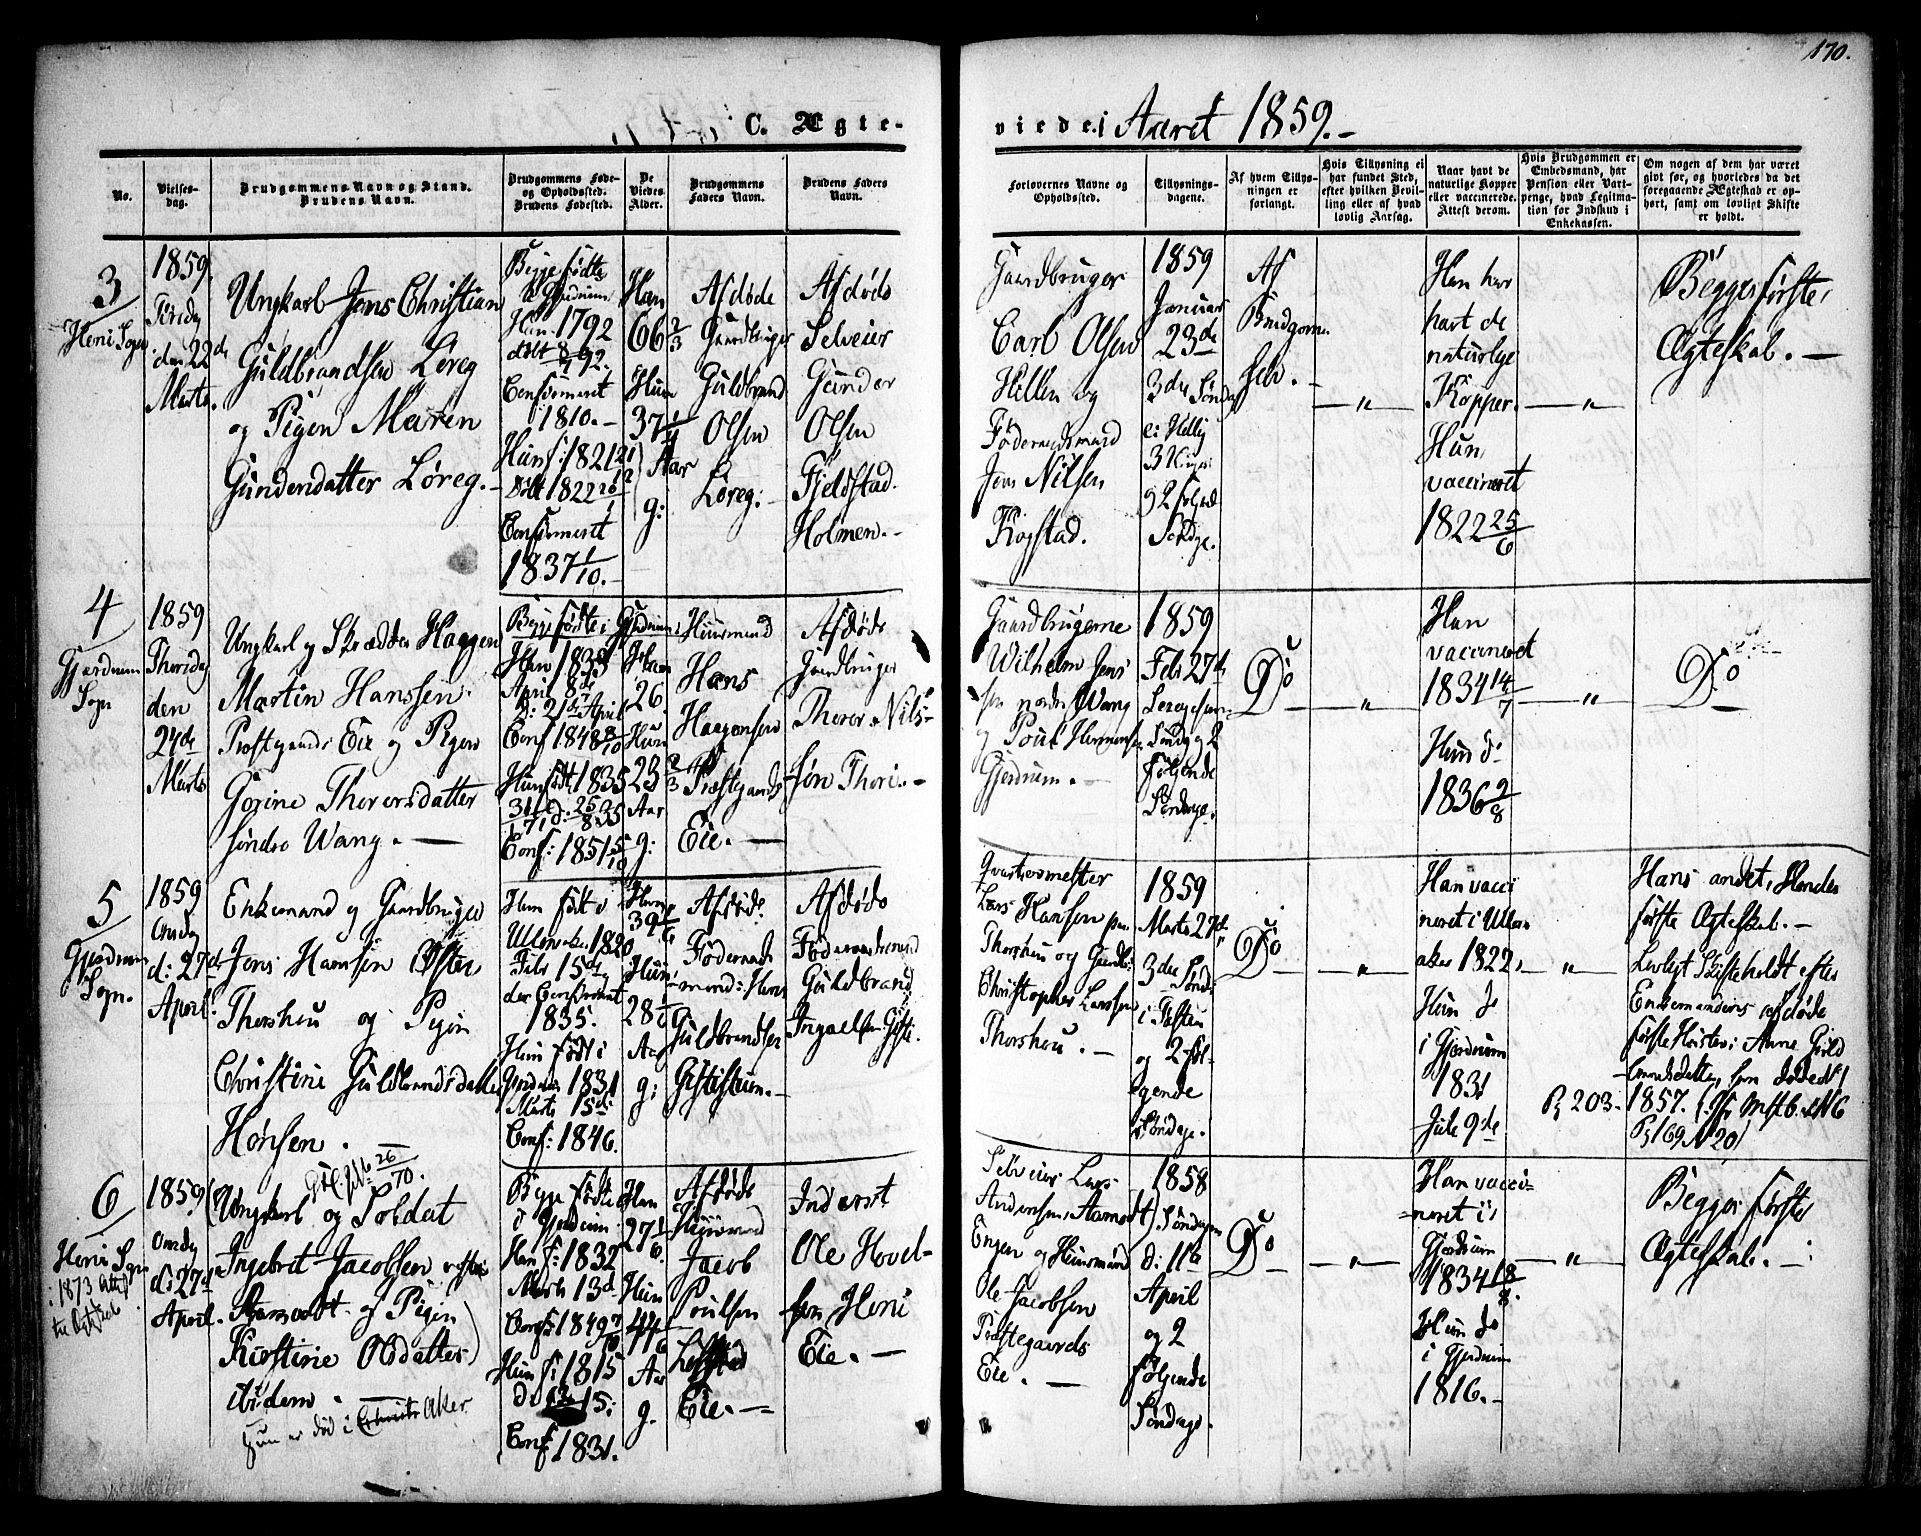 170.
C. Ægte-
viede i Aaret 1859.-
No.
Vielses-
dag.
Brudgommens Navn og Stand.
Brudens Navn.
Brudgommens Føde-
og Opholdssted.
Brudens Fødested.
De
Viedes
Alder.
Brudgommens
Faders Navn.
Brudens Faders
Navn.
Forlovernes Navne og
Opholdssted.
Tillysnings-
dagene.
Af hvem Tillys-
ningen er
forlangt.
Hvis Tillysning ei
har fundet Sted,
efter hvilken Bevil-
ling eller af hvad
lovlig Aarsag.
Naar havt de
naturlige Kopper
eller vaccinerede.
Attest derom.
Hvis Brudgommen er
Embedsmand, har
Pension eller Vart-
penge, hvad Legitima-
tion for Indskud i
Enkekassen.
Om nogen af dem har været
gift før, og hvorledes da det
foregaaende Ægteskab er op-
hørt, samt om lovligt Skifte
er holdt.
3
Heni Sogn
1859.
Tirsdag
den 22de
Marts.
Ungkarl Jens Christian
Guldbrandsen Løreg
og Pigen Maren
Gundersdatter Løreg.-
Begge fødte
i Gjerdrum
Han 1792
døbt 8/4 92.
Confirmeret
1810.-
Hun f: 1821 21/12
Døbt 1822 26/1
Confirmeret
1837 1/10.-
Han
66 2/3
Hun
37 1/4
Aar
g:
Afdøde
Gaardbruger
Guldbrand
Olsen
Løreg.-
Afdøde
Selveier
Gunder
Olsen
Fjeldstad
Holmen.-
Gaardbruger
Carl Olsen
Hellen og
Føderaadsmand
Jens Nilsen
Kogstad.
1859
Januar
23de
3die Søndag
e: Hellig
3 Konger
og 2 følgende
Søndage.
Af
Brudgommen
selv.
- " -
Han har
havt de
naturlige
Kopper.
Hun
vaccineret
1822 25/6
- " -
Begges første
Ægteskab. -
4
Gjerdrum
Sogn
1859
Thorsdag
den
24de
Marts
Ungkarl og Skrædder Haagen
Martin Hanssen
Præstgaards Eie og Pigen
Gorine Thorersdatter
søndre Wang. -
Begge fødte i Gjerdrum:
Han 1833
April 8de
D: 21de April
Conf 1848 8/10
Hun født 1835
31/7 d: 25/8 35
Conf: 1851 5/10
Han
26.
Hun
23 2/3
Aar
g:
Huusmand
Hans
Haagensen
Præstgaards
Eie. -
Afdøde
Gaardbruger
Thorer Nils-
søn Thori. -
Gaardbrugerne
Wilhelm Jens
sen nordre Wang
og Poul Hermansen
Gjerdrum. -
1859
Febr 27de
Søndag og 2
følgende
Søndage.
Do
- " -
Han
vaccineret
1834 14/7
Hun do
1836 2/8
- " -
Do
5
Gjerdrum
Sogn.
1859
Onsdag
d: 27de
April
Enkemand og Gaardbruger
Jens Hansen Østre
Thorshau og Pigen
Christine Guldbrandsdatter
Hønsen.
Han født i
Ullensaker 1820
Febr 15de
der Confirmeret
1835.
Hun født i
Gjerdrum 1831
Marts 15de
Conf: 1846.
Han
39 1/6
Hun
28 1/6
Aar
g:
Afdøde
Føderaads
mand: Hans
Guldbrandsen
Gistestuen.-
Afdøde
Føderaadsmand
Guldbrand
Ingvalsen Giste.
Qvartermester
Lars Hansen paa
Thorshau og Gaardbr:
Christopher Larssen
Thorshau. -
1859
Marts 27de
3die Søndag
i Fasten
og 2 føl-
gende
Søndage.
Do
- " -
Han vacci
neret i Ullen
aker 1822.
Hun do
i Gjerdrum
1831
Juli 9de
- " -
Hans andet, Hendes
første Ægteskab. -
Lovligt Skifte holdt efter
Enkemandens afdøde
første Hustru: Anne Guld
brandsdatter, hun døde
Pg 203. 1857.
Pg 169 N 20)
6
Heni Sogn
1859
Onsdag
d: 27de
April.
26/6 70.
(Ungkarl og Soldat
Ingebret Jacobsen østre
Aamodt og Pigen
Kirstine Olsdatter)
ibidem.
Hun er død i Aker
Begge fødte
i Gjerdrum
Han f: 1832
Marts 13de
Conf: 1849 7/10
Hun f: 1815
15:
Conf 1831.
Han
27 1/6
Hun
44 1/6
Aar
g.
Afdøde
Huusmand
Jacob
Poulsen
Eie. -
Inderst
Ole Hovel-
sen Heni
Eie. -
Selveier Lars
Andersen, Aamodt
Engen og Huusmand
Ole Jacobsen
Præstegaards
Eie. -
1858
Søndagen
d: 11te
April
og 2
følgende
Søndage.
Do
- " -
Han vacci-
neret i
Gjerdrum
1834 18/8.
Hun do
i Gjerdrum
1816.-
- " -
Begges første
Ægteskab. -